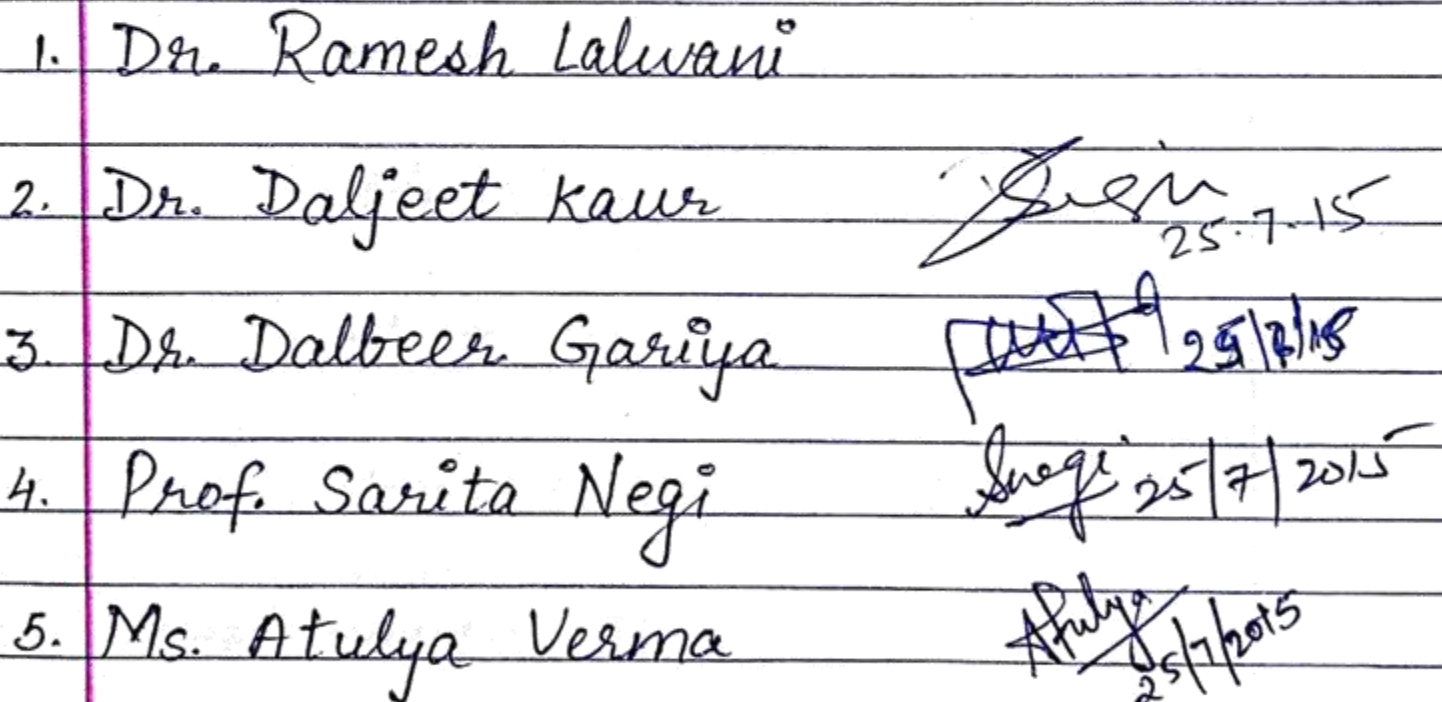 1. Dr. Ramesh Lalwani
2. Dr. Daljeet Kaur 25.7.15
3. Dr. Dalbeer Gariya 25/7/15
4. Prof. Sarita Negi Snegi 25/7/2015
5. Ms. Atulya Verma Atulya 25/7/2015